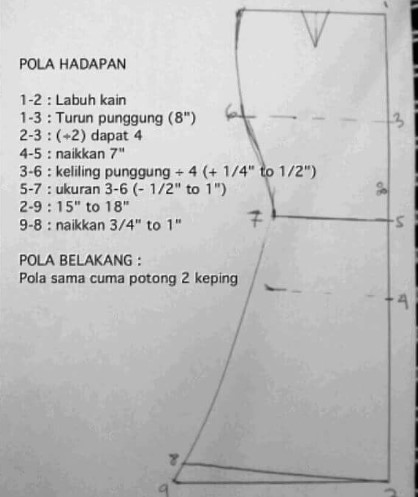 POLA HADAPAN
1-2 : Labuh kain
1-3 : Turun punggung (8")
2-3 : (÷2) dapat 4
4-5 : naikkan 7"
3-6 : keliling punggung ÷ 4 (+ 1/4" to 1/2")
5-7 : ukuran 3-6 (- 1/2" to 1")
2-9 : 15" to 18"
9-8 : naikkan 3/4" to 1"
POLA BELAKANG :
Pola sama cuma potong 2 keping
6
3
7
5
4
8
9
2